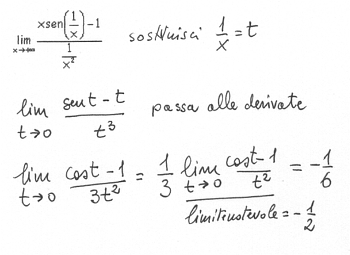 lim x→∞ (x sen(1/x) − 1) / (1/x²) sostituisci 1/x = t
lim t→0 (sent − t) / t³ passa alle derivate
lim t→0 (cost − 1) / 3t² = 1/3 lim t→0 (cost − 1) / t² = −1/6
limite notevole = −1/2